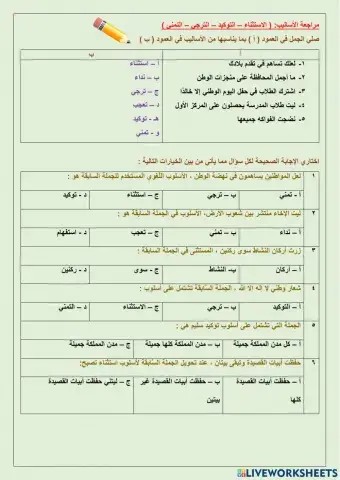 مراجعة الأساليب: ( الاستثناء – التوكيد – الترجي – التمني )
صلي الجمل في العمود ( أ ) بما يناسبها من الأساليب في العمود ( ب )
ب
١- لعلك تساهم في تقدم بلادك
أ – استثناء
٢- ما أجمل المحافظة على منجزات الوطن
ب – نداء
٣- اشترك الطلاب في حفل اليوم الوطني إلا خالدًا
ج – ترجي
٤- ليت طلاب المدرسة يحصلون على المركز الأول
د – تعجب
٥- نضجت الفواكه جميعها
هـ - توكيد
و – تمني
اختاري الإجابة الصحيحة لكل سؤال مما يأتي من بين الخيارات التالية :
١ لعل المواطنين يساهمون في نهضة الوطن ، الأسلوب اللغوي المستخدم للجملة السابقة هو :
أ – تمني ب – ترجي ج – استثناء د - توكيد
٢ ليت الإخاء منتشر بين شعوب الأرض، الأسلوب في الجملة السابقة هو :
أ – نداء ب – تمني ج – تعجب د - استفهام
٣ زرت أركان النشاط سوى ركنين ، المستثنى في الجملة السابقة :
أ – أركان ب- النشاط ج - سوى د - ركنين
٤ شعار وطني لا إله إلا الله ، الجملة السابقة تشتمل على أسلوب :
أ – التوكيد ب – ترجي ج – الاستثناء د – التمني
٥ الجملة التي تشتمل على أسلوب توكيد سليم هي :
أ – كل مدن المملكة جميلة ب – مدن المملكة كلها جميلة ج – مدن المملكة جميلة
٦ حفظت أبيات القصيدة وتبقى بيتان ، عند تحويل الجملة السابقة لأسلوب استثناء تصبح:
أ – حفظت أبيات القصيدة كلها ب – حفظت أبيات القصيدة غير بيتين ج – ليتني حفظت أبيات القصيدة
LIVEWORKSHEETS